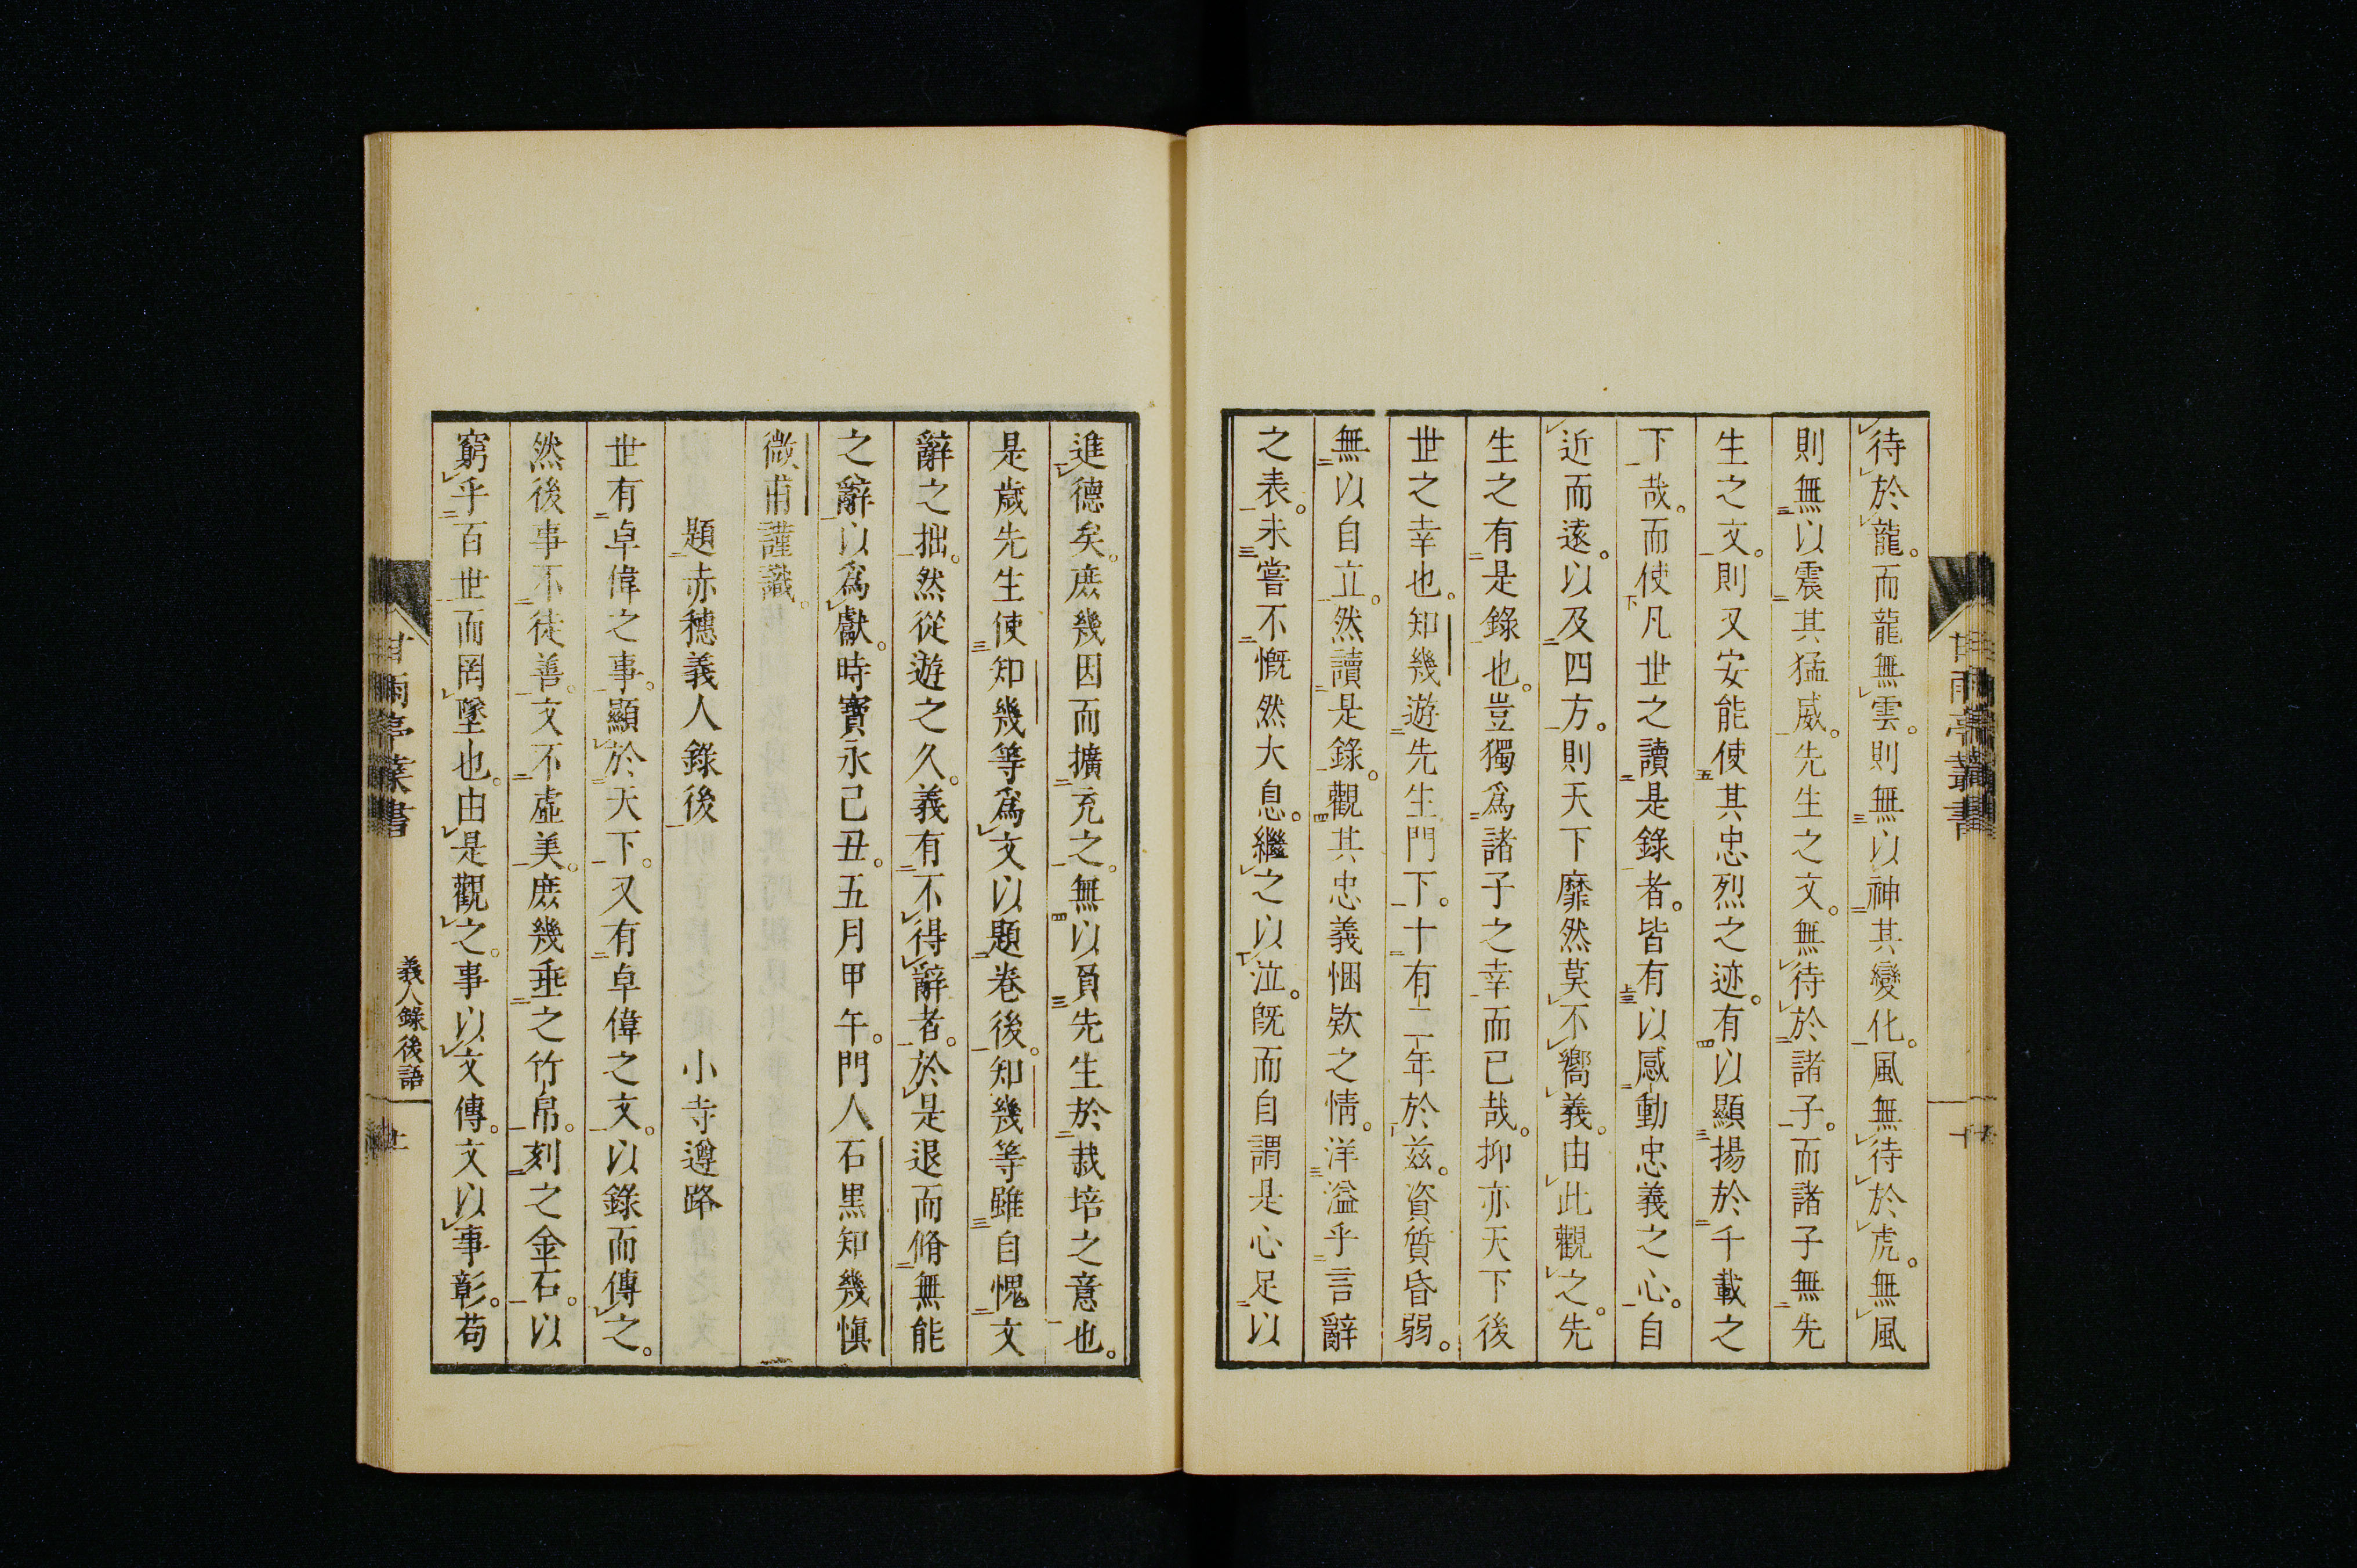 待於龍。而龍無雲。則無以神其變化。風無待於虎。無風
則無以震其猛威。先生之文。無待於諸子。而諸子無先
生之文。則又安能使其忠烈之迹。有以顯揚於千載之
下哉。而使凡世之讀是錄者。皆有以感動忠義之心。自
近而遠。以及四方。則天下靡然莫不嚮義。由此觀之。先
生之有是錄也。豈獨爲諸子之幸而已哉。抑亦天下後
世之幸也。知幾遊先生門下。十有二年於茲。資質昏弱。
無以自立。然讀是錄。觀其忠義悃欵之情。洋溢乎言辭
之表。未嘗不慨然大息。繼之以泣。旣而自謂是心足以
進德矣。庶幾因而擴充之。無以負先生於栽培之意也。
是歲先生使知幾等爲文以題卷後。知幾等雖自愧文
辭之拙。然從遊之久。義有不得辭者。於是退而脩無能
之辭以爲獻。時寶永己丑。五月甲午。門人石黒知幾愼
微甫謹識。
題赤穗義人錄後　小寺遵路
世有卓偉之事。顯於天下。又有卓偉之文。以錄而傳之。
然後事不徒善。文不虛美。庶幾垂之竹帛。刻之金石。以
窮乎百世而罔墜也。由是觀之。事以文傳。文以事彰。苟
甘雨亭叢書
義人錄後語
甘雨亭叢書